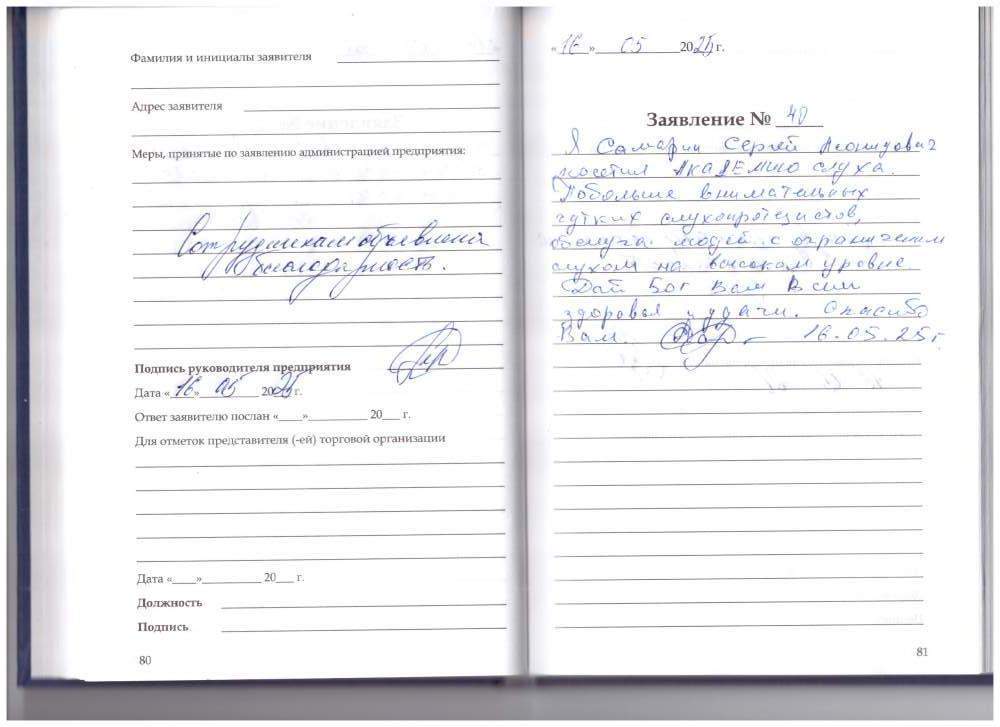 Фамилия и инициалы заявителя
Адрес заявителя
Меры, принятые по заявлению администрацией предприятия:
Сотрудникам объявлена
благодарность.
Подпись руководителя предприятия
Дата «16» 05 2025 г.
Ответ заявителю послан «____»__________ 20___ г.
Для отметок представителя (-ей) торговой организации
Дата «____»__________ 20___ г.
Должность
Подпись
80
«16» 05 2025 г.
Заявление № 40
Я Самарин Сергей Леонидович
посетил АКАДЕМИЮ слуха.
Побольше внимательных
чутких слухопротезистов,
людей с ограничением
слухом на высоком уровне.
Дай Бог Вам Всем
здоровья и удачи. Спасибо
Вам. 16.05.25г.
81